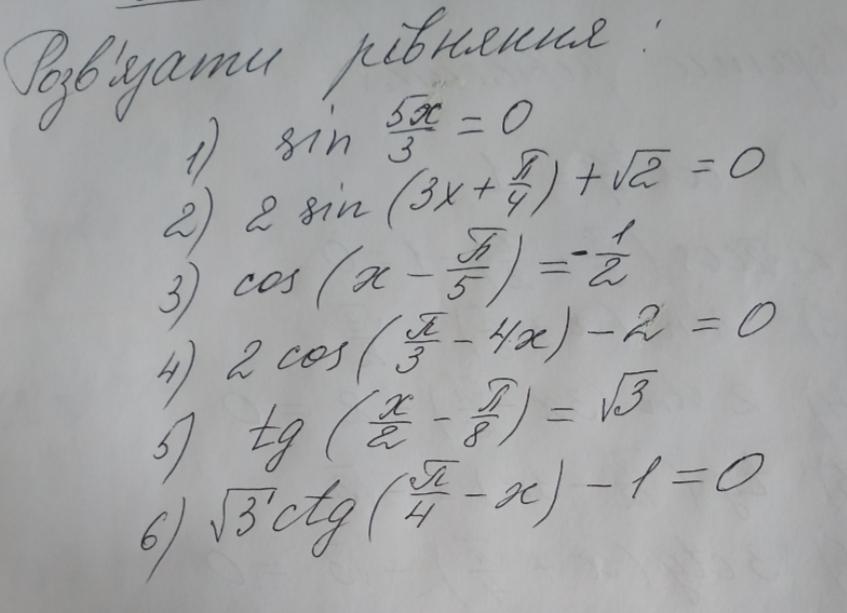 Розв'язати рівняння :
1) sin 5x/3 = 0
2) 2 sin (3x + π/4) + √2 = 0
3) cos (x - π/5) = -1/2
4) 2 cos (π/3 - 4x) - 2 = 0
5) tg (x/2 - π/8) = √3
6) √3 ctg (π/4 - x) - 1 = 0